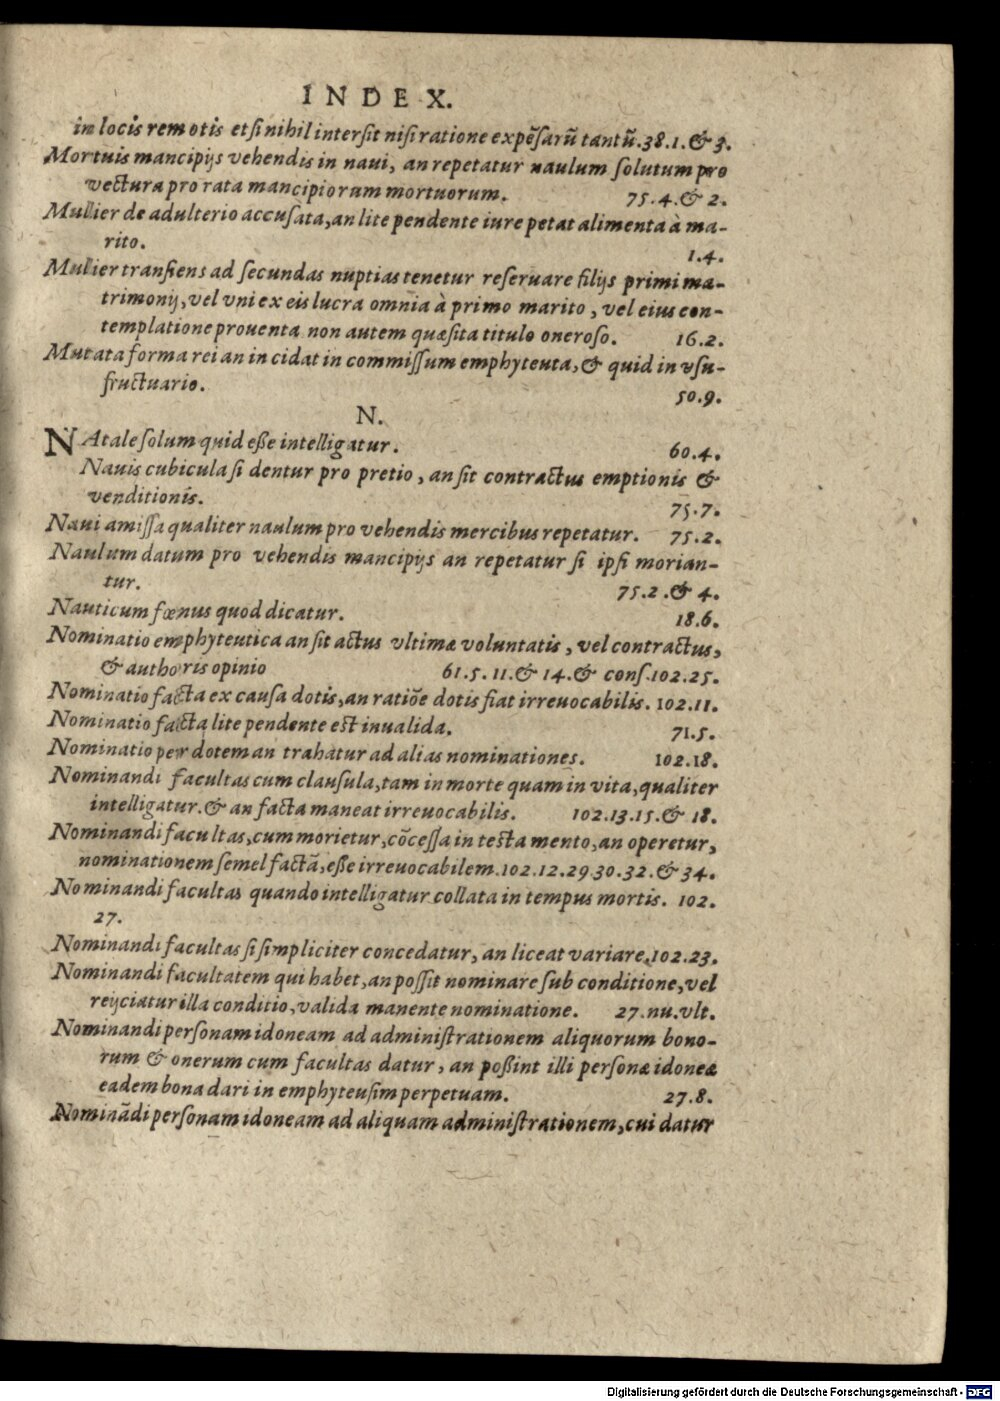 INDEX.
in locis remotis etsi nihil intersit nisi ratione expẽsarũ tantũ.38.1.& 3.
Mortuis mancipijs vehendis in naui, an repetatur naulum solutum pro
vectura pro rata mancipiorum mortuorum. 75.4.& 2.
Mulier de adulterio accusata,an lite pendente iure petat alimenta à ma-
rito. 1.4.
Mulier transiens ad secundas nuptias tenetur reseruare filijs primi ma-
trimonij,vel vni ex eis lucra omnia à primo marito, vel eius con-
templatione prouenta non autem quæsita titulo oneroso. 16.2.
Mutata forma rei an incidat in commissum emphyteuta,& quid in vsu-
fructuario. 50.9.
N.
NAtale solum quid eße intelligatur. 60.4.
Nauis cubicula si dentur pro pretio, an sit contractus emptionis &
venditionis. 75.7.
Naui amissa qualiter naulum pro vehendis mercibus repetatur. 75.2.
Naulum datum pro vehendis mancipijs an repetatur si ipsi morian-
tur. 75.2.& 4.
Nauticum fœnus quod dicatur. 18.6.
Nominatio emphyteutica an sit actus vltimæ voluntatis, vel contractus,
& authoris opinio 61.5.11.& 14.& cons.102.25.
Nominatio facta ex causa dotis,an ratiõe dotis fiat irreuocabilis. 102.11.
Nominatio facta lite pendente est inualida. 71.5.
Nominatio per dotem an trahatur ad alias nominationes. 102.18.
Nominandi facultas cum clausula,tam in morte quam in vita,qualiter
intelligatur.& an facta maneat irreuocabilis. 102.13.15.& 18.
Nominandi facultas,cum morietur,cõcessa in testamento,an operetur,
nominationem semel factã,eße irreuocabilem.102.12.29.30.32.& 34.
Nominandi facultas quando intelligatur collata in tempus mortis. 102.
27.
Nominandi facultas si simpliciter concedatur, an liceat variare.102.23.
Nominandi facultatem qui habet,an possit nominare sub conditione,vel
reijciatur illa conditio,valida manente nominatione. 27.nu.vlt.
Nominandi personam idoneam ad administrationem aliquorum bono-
rum & onerum cum facultas datur, an poßint illi personæ idoneæ
eadem bona dari in emphyteusim perpetuam. 27.8.
Nominãdi personam idoneam ad aliquam administrationem,cui datur
Digitalisierung gefördert durch die Deutsche Forschungsgemeinschaft - DFG